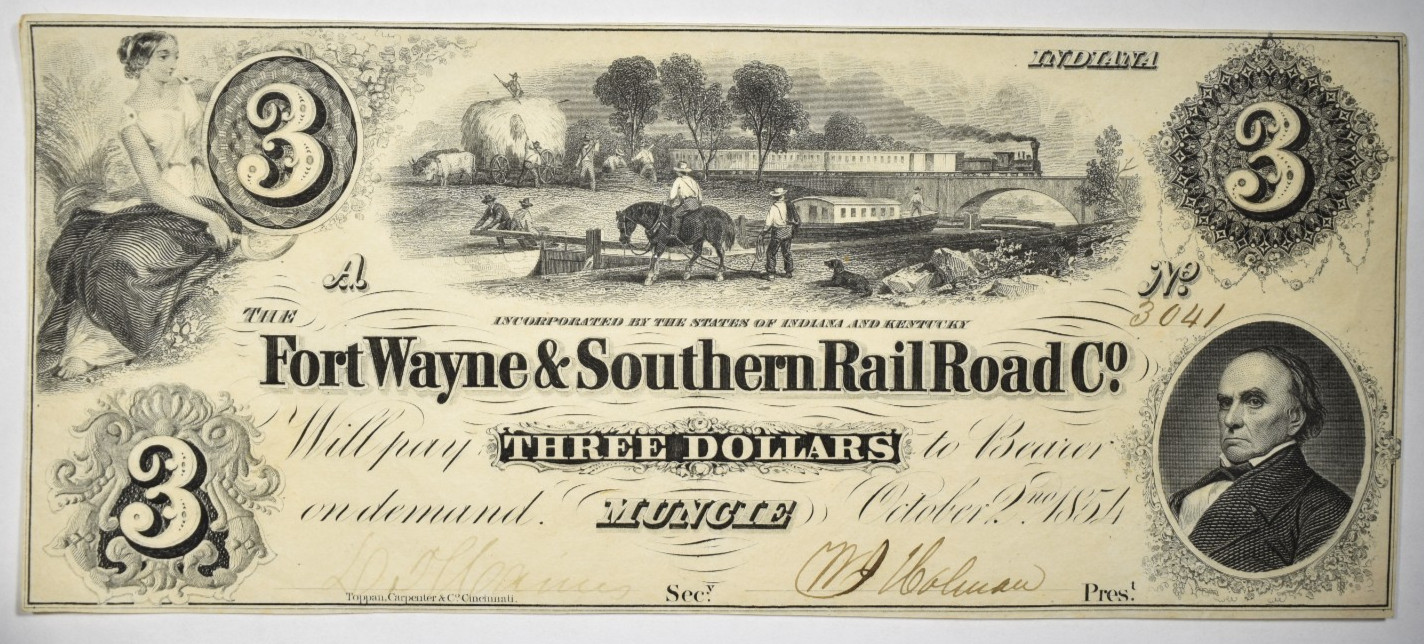 INDIANA
3
3
A.
No.
3041
THE
INCORPORATED BY THE STATES OF INDIANA AND KENTUCKY
Fort Wayne & Southern Rail Road Co.
Will pay THREE DOLLARS to Bearer
3
on demand. MUNCIE October 2nd 1854
W J Holman
Secy. Prest.
Toppan, Carpenter & Co. Cincinnati.